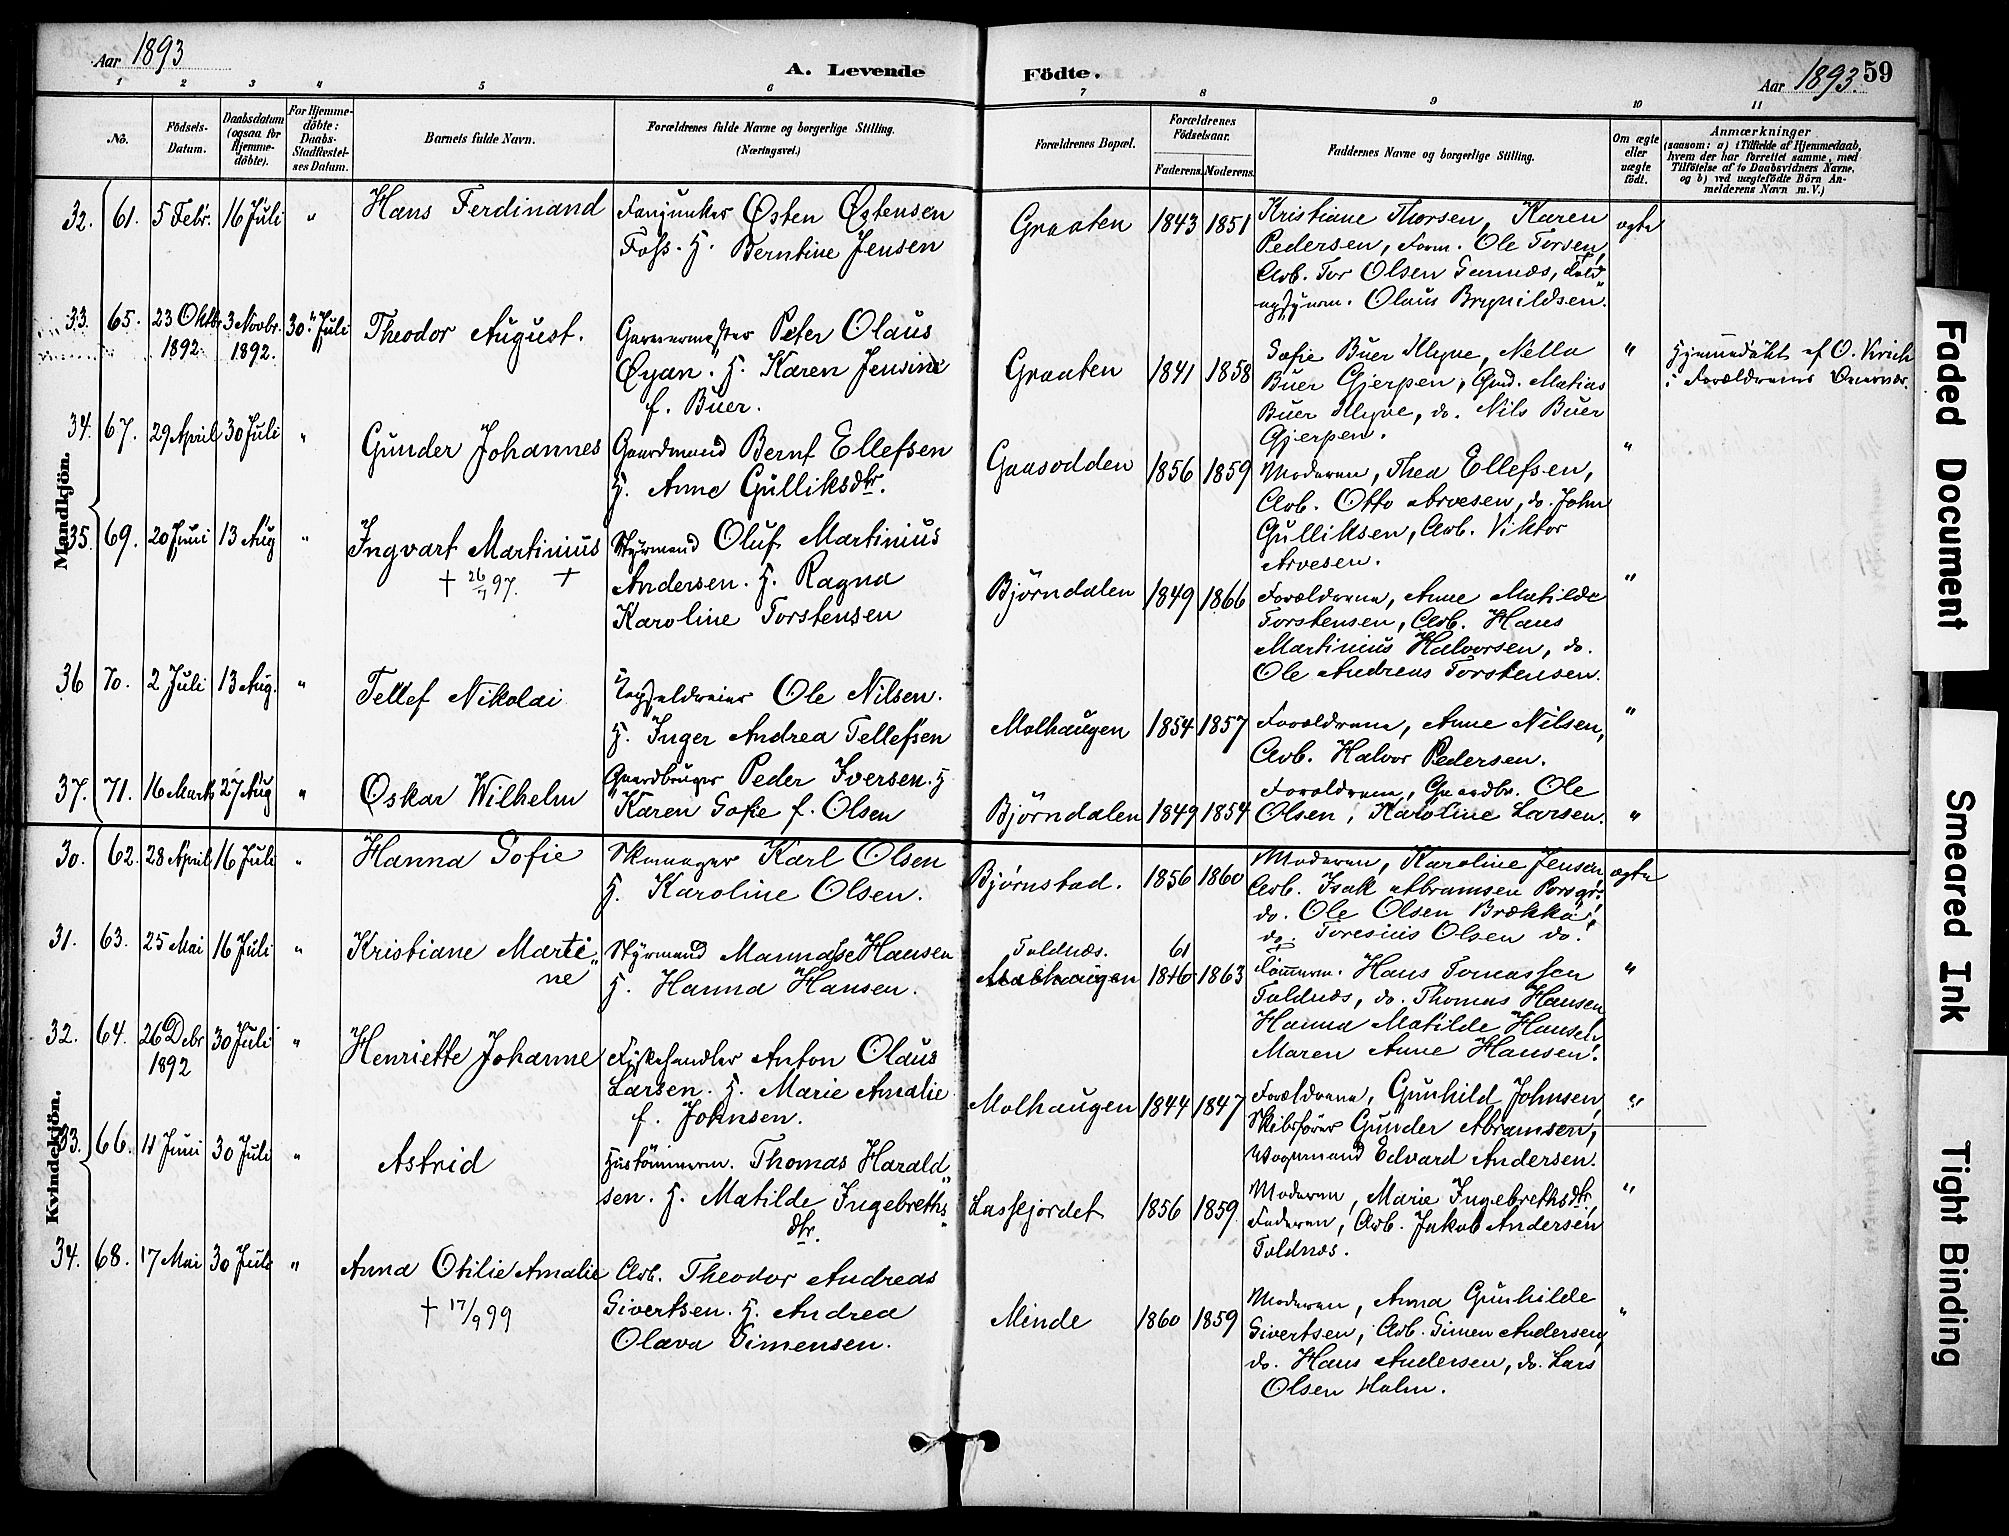 Aar 1893
A. Levende
Födte.
Aar 1893.
59
1 2 3 4 5 6 7 8 9 10 11
No.
Födsels-
Datum.
Daabsdatum
(ogsaa for
Hjemme-
döbte).
For Hjemme-
döbte:
Daabs-
Stadfæstel-
ses Datum.
Barnets fulde Navn.
Forældrenes fulde Navne og borgerlige Stilling.
(Næringsvei.)
Forældrenes Bopæl.
Forældrenes
Födselsaar.
Faderens. Moderens.
Faddernes Navne og borgerlige Stilling.
Om ægte
eller
uægte
födt.
Anmærkninger
(saasom: a) i Tilfælde af Hjemmedaab,
hvem der har forrettet samme, med
Tilföielse af to Daabsvidners Navne.
og b) ved uægtefödte Börn An-
melderens Navn m. V.)
Mandkjön.
32. 61. 5 Febr. 16 Juli " Hans Ferdinand
Fanejunker Østen Østensen
Foss. H. Berntine Jensen
Graaten 1843 1851
Kristiane Thorsen, Karen
Pedersen, Form. Ole Torsen,
Arb. Tor Olsen
Olaus Brynildsen.
ægte
33. 65. 23 Oktbr. 3 Novbr. 30. Juli Theodor August.
1892. 1892.
Garvermester Peter Olaus
Øyan. H. Karen Jensine
f. Buer.
Graaten 1841 1858
Sofie Buer Nella
Buer Gjerpen, Gmd. Matias
Buer do. Nils Buer
Gjerpen.
"
Hjemmedøbt af O.
i Forældrenes
34. 67. 29 April 30 Juli " Gunder Johannes
Gaardmand Bernt Ellefsen
H. Anne Gulliksdtr.
Gaasodden 1856 1859
Moderen, Thea Ellefsen,
Arb. Otto Arvesen, do. John
Gulliksen, Arb. Viktor
Arvesen.
"
35. 69. 20 Juni 13 Aug " Ingvart Martinius
† 26/7 97. †
Styrmand Oluf Martinius
Andersen. H. Ragna
Karoline Torstensen
Bjørndalen 1849 1866
Forældrene, Anne Matilde
Torstensen, Arb. Hans
Martinius Halvorsen, do.
Ole Andreas Torstensen.
"
36 70. 2 Juli 13 Aug. " Tellef Nikolai
Ole Nilsen.
H. Inger Andrea Tellefsen
Molhaugen 1854 1857
Forældrene, Anne Nilsen,
Arb. Halvor Pedersen.
"
37. 71. 16 Marts 27 Aug " Oskar Wilhelm
Gaardbruger Peder Iversen. H
Karen Sofie f. Olsen
Bjørndalen 1849 1854
Forældrene, Gaardbr. Ole
Olsen, Karoline Larsen.
"
Kvindekjön.
30. 62. 28 April 16 Juli " Hanna Sofie
Skomager Karl Olsen
H. Karoline Olsen.
Bjørnstad. 1856 1860
Moderen, Karoline Jensen,
Arb. Isak Abramsen Porsgr.
do. Ole Olsen Brække,
do. Toresius Olsen do.
ægte
31. 63. 25 Mai 16 Juli " Kristiane Marti-
ne
Styrmand Mannasse Hansen
H. Hanna Hansen.
Toldnæs.
Molhaugen
61
1846 1863
Tømmerm. Hans Tomassen
Toldnæs, do. Thomas Hansen
Hanna Matilde Hansen,
Maren Anne Hansen.
"
32. 64. 26 Debr 30 Juli " Henriette Johanne
1892
Fiskehandler Anton Olaus
Larsen. H. Marie Amalie
f. Johnsen.
Molhaugen 1844 1847
Forældrene, Gunhild Johnsen,
Skibsfører Gunder Abramsen,
Vognmand Edvard Andersen.
"
33. 66. 11 Juni 30 Juli " Astrid
Hustömmerm. Thomas Harald-
sen. H. Matilde Ingebreths-
dtr.
Lassejordet 1856 1859
Moderen, Marie Ingebrethsdtr,
Faderen, Arb. Jakob Andersen,
Toldnæs.
"
34. 68. 17 Mai 30 Juli " Anna Otilie Amalie
† 17/9 99
Arb. Theodor Andreas
Sivertsen. H. Andrea
Olava Simensen.
Minde 1860 1859
Moderen, Anna Gunhilde
Sivertsen, Arb. Simen Andersen,
do. Hans Andersen, do. Lars
Olsen Holm.
"
Faded Document
Smeared Ink
Tight Binding